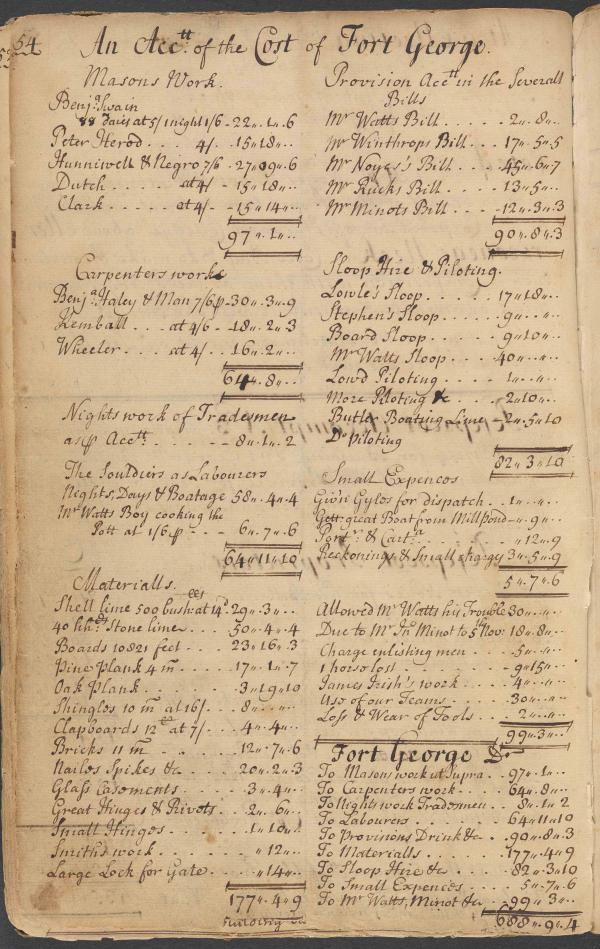 54
An Acctt. of the Cost of Fort George.
Masons Work.
Benja Swain
88 daies at 5/ 1 night 1/6 - 22 ,, 1 ,, 6
Peter Herod . . . 4/. - 15 ,, 18 ,, ..
Hunniwell & Negro 7/6 - 27 ,, 09 ,, 6
Dutch . . . . at 4/ - 15 ,, 18 ,, ..
Clark . . . . . at 4/- - 15 ,, 14 ,, ..
97 ,, 1 ,, ..
Carpenters worke
Benja. Haley & Man 7/6 p - 30 ,, 3 ,, 9
Kemball . . . at 4/6 - 18 ,, 2 ,, 3
Wheeler . . . at 4/. . 16 ,, 2 ,, ..
64 ,, 8 ,, ..
Nights work of Tradesmen
as p Acctt. . . - - - 8 ,, 1 ,, 2
The Souldiers as Labourers
Nights, Days & Boatage 58 ,, 4 ,, 4
Mr Watts Boy cooking the
Pott at 1/6 p - - - 6 ,, 7 ,, 6
64 ,, 11 ,, 10
Materialls.
Shell lime 500 bushells at 14d. 29 ,, 3 ,, ..
40 hhds Stone lime . . . 50 ,, 4 ,, 4
Boards 10821 feet . . . 23 ,, 16 ,, 3
Pine Plank 4 m . . . . 17 ,, 1 ,, 7
Oak Plank . . . . . 3 ,, 19 ,, 10
Shingles 10 m at 16/ . . . 8 ,, .. ,, ..
Clapboards 12 at 7/ . . . 4 ,, 4 ,, ..
Bricks 11 m . . . . 12 ,, 7 ,, 6
Nailes Spikes &c . . . . 20 ,, 2 ,, 3
Glass Casements . . . . 3 ,, 4 ,, ..
Great Hinges & Rivets . . 2 ,, 6 ,, ..
Small Hinges . . . . . 1 ,, 10 ,, ..
Smiths work . . . . . ,, 12 ,, ..
Large Lock for Gate . . . . ,, 14 ,, ..
177 ,, 4 ,, 9
Provision Acctt in the Severall
Bills
Mr Watts Bill . . . . . 2 ,, 8 ,, ..
Mr Winthrops Bill . . . 17 ,, 5 ,, 5
Mr Noyes's Bill . . . . 45 ,, 6 ,, 7
Mr Rucks Bill . . . . 13 ,, 5 ,, ..
Mr Minots Bill . . . - 12 ,, 3 ,, 3
90 ,, 8 ,, 3
Sloop Hire & Piloting.
Lowle's Sloop . . . . . 17 ,, 18 ,, ..
Stephen's Sloop . . . . . 9 ,, .. ,, ..
Board Sloop . . . . . 9 ,, 10 ,, ..
Mr Watts Sloop . . . . 40 ,, .. ,, ..
Lowd Piloting . . . . . 1 ,, .. ,, ..
More Piloting & . . . . 2 ,, 10 ,, ..
Butler Boating Lime - 2 ,, 5 ,, 10
Do Piloting
82 ,, 3 ,, 10
Small Expences
Giv'n Gyles for dispatch . . 1 ,, .. ,, ..
Gett: great Boat from Mill Pond - ,, 9 ,, ..
Portr. & Carta . . . . ,, 12 ,, 9
Reckonings & Small charges 3 ,, 5 ,, 9
5 ,, 7 ,, 6
Allowed Mr Watts his Trouble 30 ,, .. ,, ..
Due to Mr Jn Minot to 5th Nov: 18 ,, 8 ,, ..
Charge enlisting men . . . . 5 ,, .. ,, ..
1 horse lost . . . . . . . . 9 ,, 15 ,, ..
James Irish's work . . . . . 4 ,, .. ,, ..
Use of our Teams . . . . . 30 ,, .. ,, ..
Loss & Wear of Tools . . . 2 ,, .. ,, ..
99 ,, 3 ,, ..
Fort George Dr.
To Masons work ut Supra . . 97 ,, 1 ,, ..
To Carpenters work . . . . 64 ,, 8 ,, ..
To Nights work Tradesmen . . 8 ,, 1 ,, 2
To Labourers . . . . . 64 ,, 11 ,, 10
To Provisions Drink &c . . 90 ,, 8 ,, 3
To Materialls . . . . 177 ,, 4 ,, 9
To Sloop Hire &c . . . . 82 ,, 3 ,, 10
To Small Expences . . . . 5 ,, 7 ,, 6
To Mr Watts, Minot &c . . 99 ,, 3 ,, ..
688 ,, 9 ,, 4